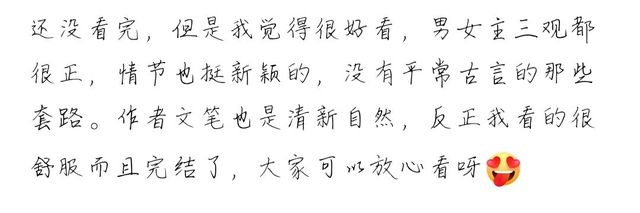 还没看完，但是我觉得很好看，男女主三观都
很正，情节也挺新颖的，没有平常古言的那些
套路。作者文笔也是清新自然，反正我看的很
舒服而且完结了，大家可以放心看呀😍